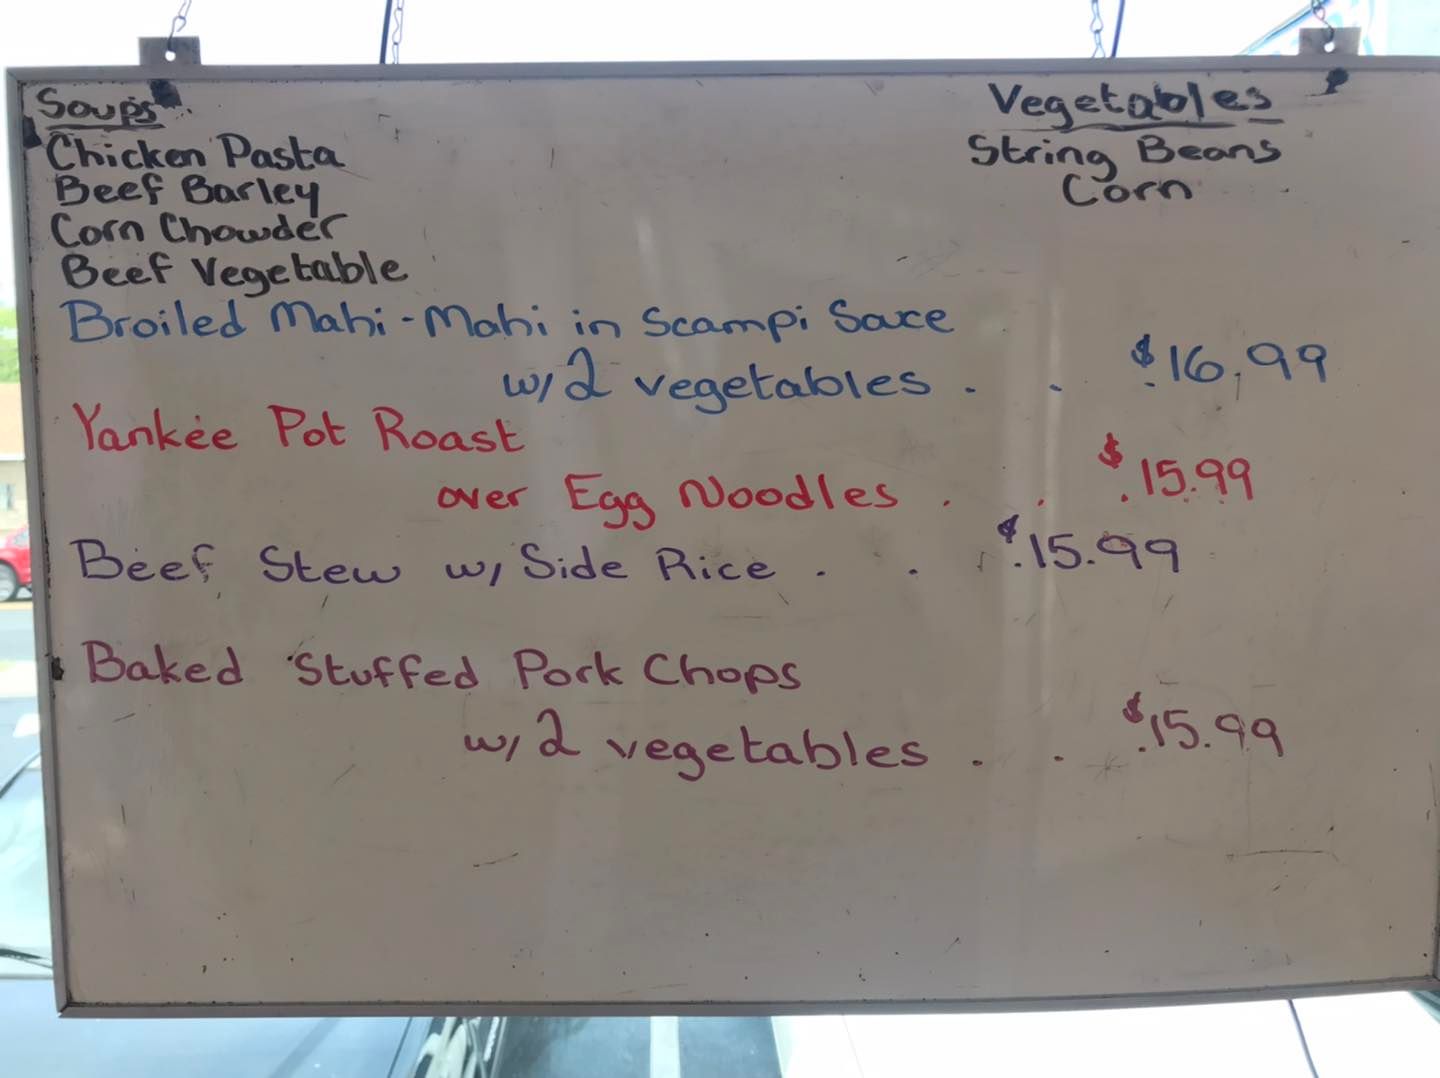 Soups
Chicken Pasta
Beef Barley
Corn Chowder
Beef Vegetable
Vegetables
String Beans
Corn
Broiled Mahi-Mahi in Scampi Sauce
w/ 2 vegetables . . $16.99
Yankee Pot Roast
over Egg Noodles . . . $15.99
Beef Stew w/ Side Rice . . $15.99
Baked Stuffed Pork Chops
w/ 2 vegetables . . $15.99